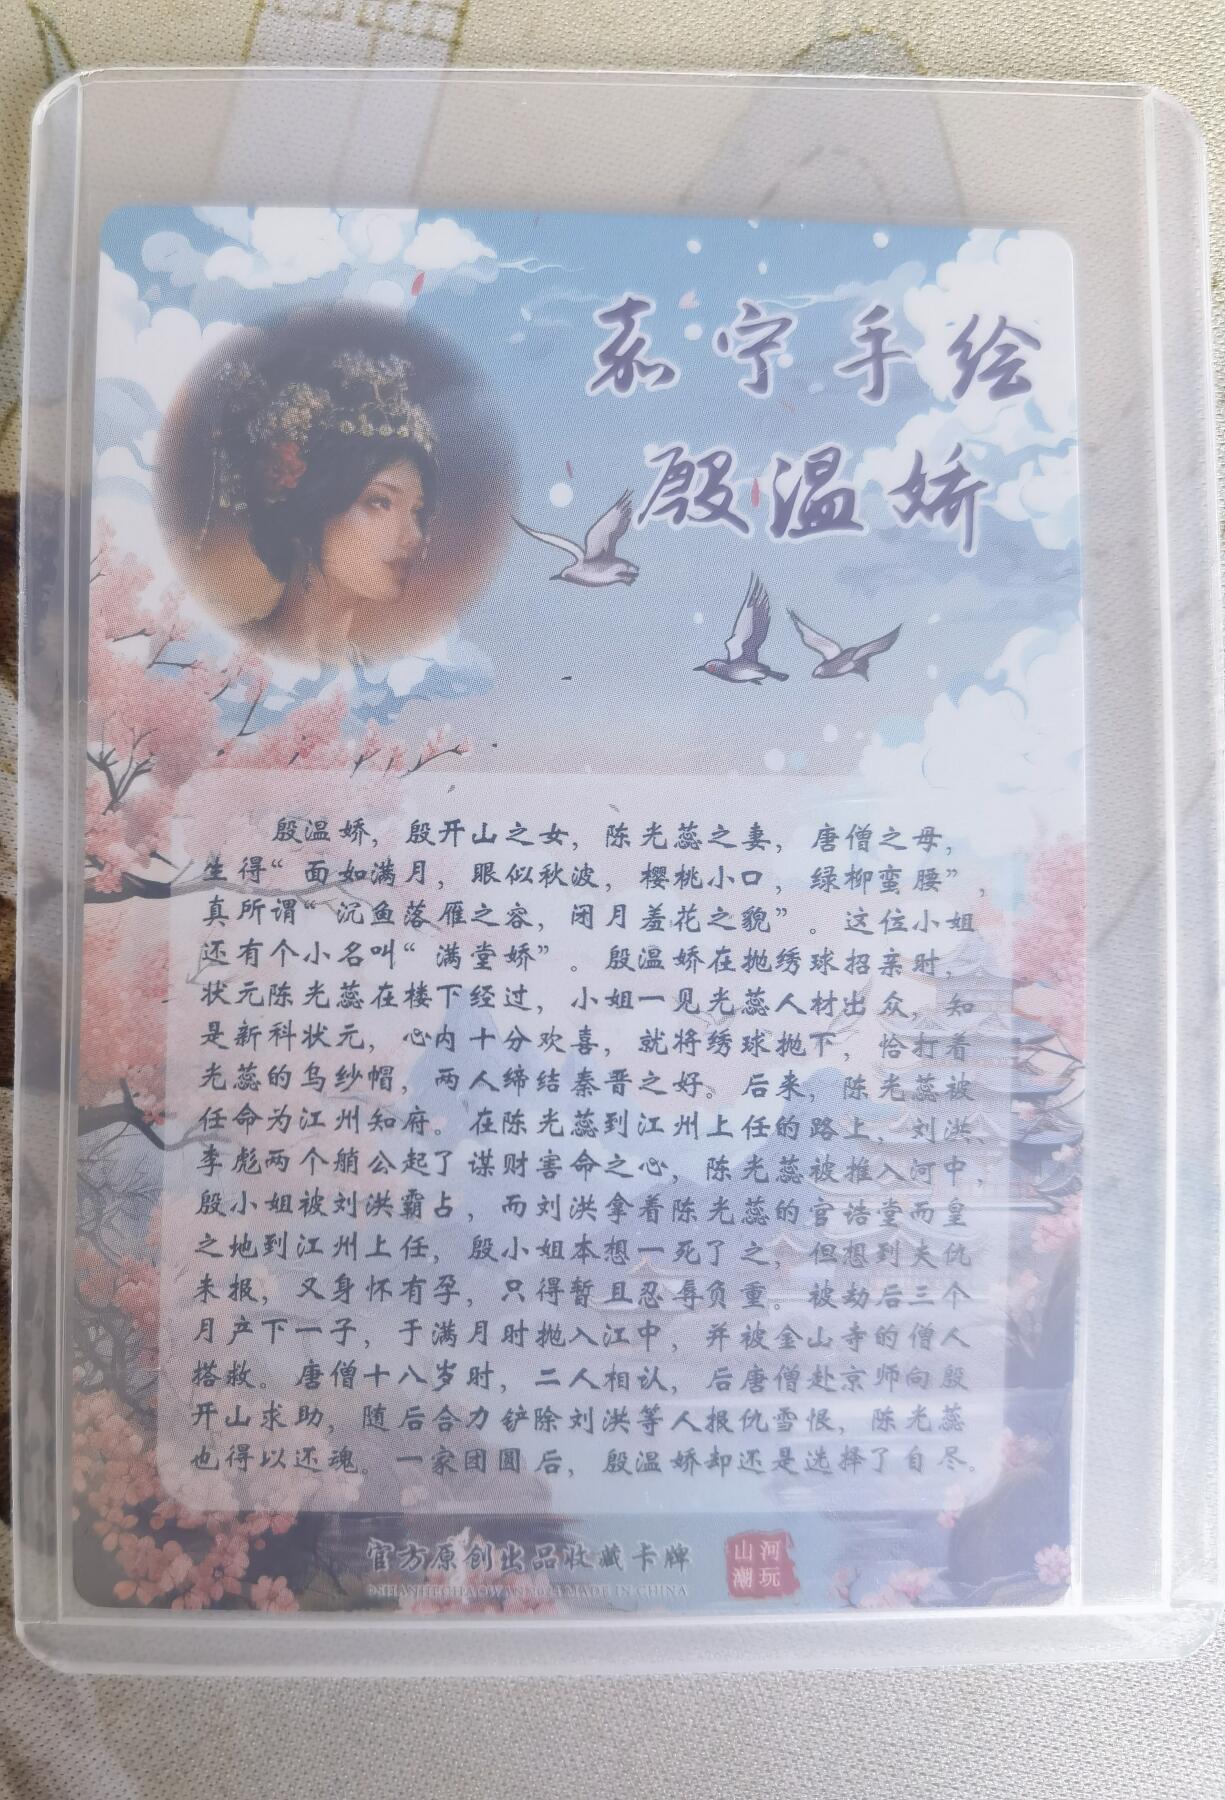 嘉宁手绘
殷温娇
殷温娇，殷开山之女，陈光蕊之妻，唐僧之母，
生得“面如满月，眼似秋波，樱桃小口，绿柳蛮腰”，
真所谓“沉鱼落雁之容，闭月羞花之貌”。这位小姐
还有个小名叫“满堂娇”。殷温娇在抛绣球招亲时，
状元陈光蕊在楼下经过，小姐一见光蕊人材出众，知
是新科状元，心内十分欢喜，就将绣球抛下，恰打着
光蕊的乌纱帽，两人缔结秦晋之好。后来，陈光蕊被
任命为江州知府。在陈光蕊到江州上任的路上，刘洪、
李彪两个艄公起了谋财害命之心，陈光蕊被推入河中，
殷小姐被刘洪霸占，而刘洪拿着陈光蕊的官诰堂而皇
之地到江州上任，殷小姐本想一死了之，但想到夫仇
未报，又身怀有孕，只得暂且忍辱负重。被劫后三个
月产下一子，于满月时抛入江中，并被金山寺的僧人
搭救。唐僧十八岁时，二人相认，后唐僧赴京师向殷
开山求助，随后合力铲除刘洪等人报仇雪恨，陈光蕊
也得以还魂。一家团圆后，殷温娇却还是选择了自尽。
官方原创出品收藏卡牌
MADE IN CHINA
山河
潮玩